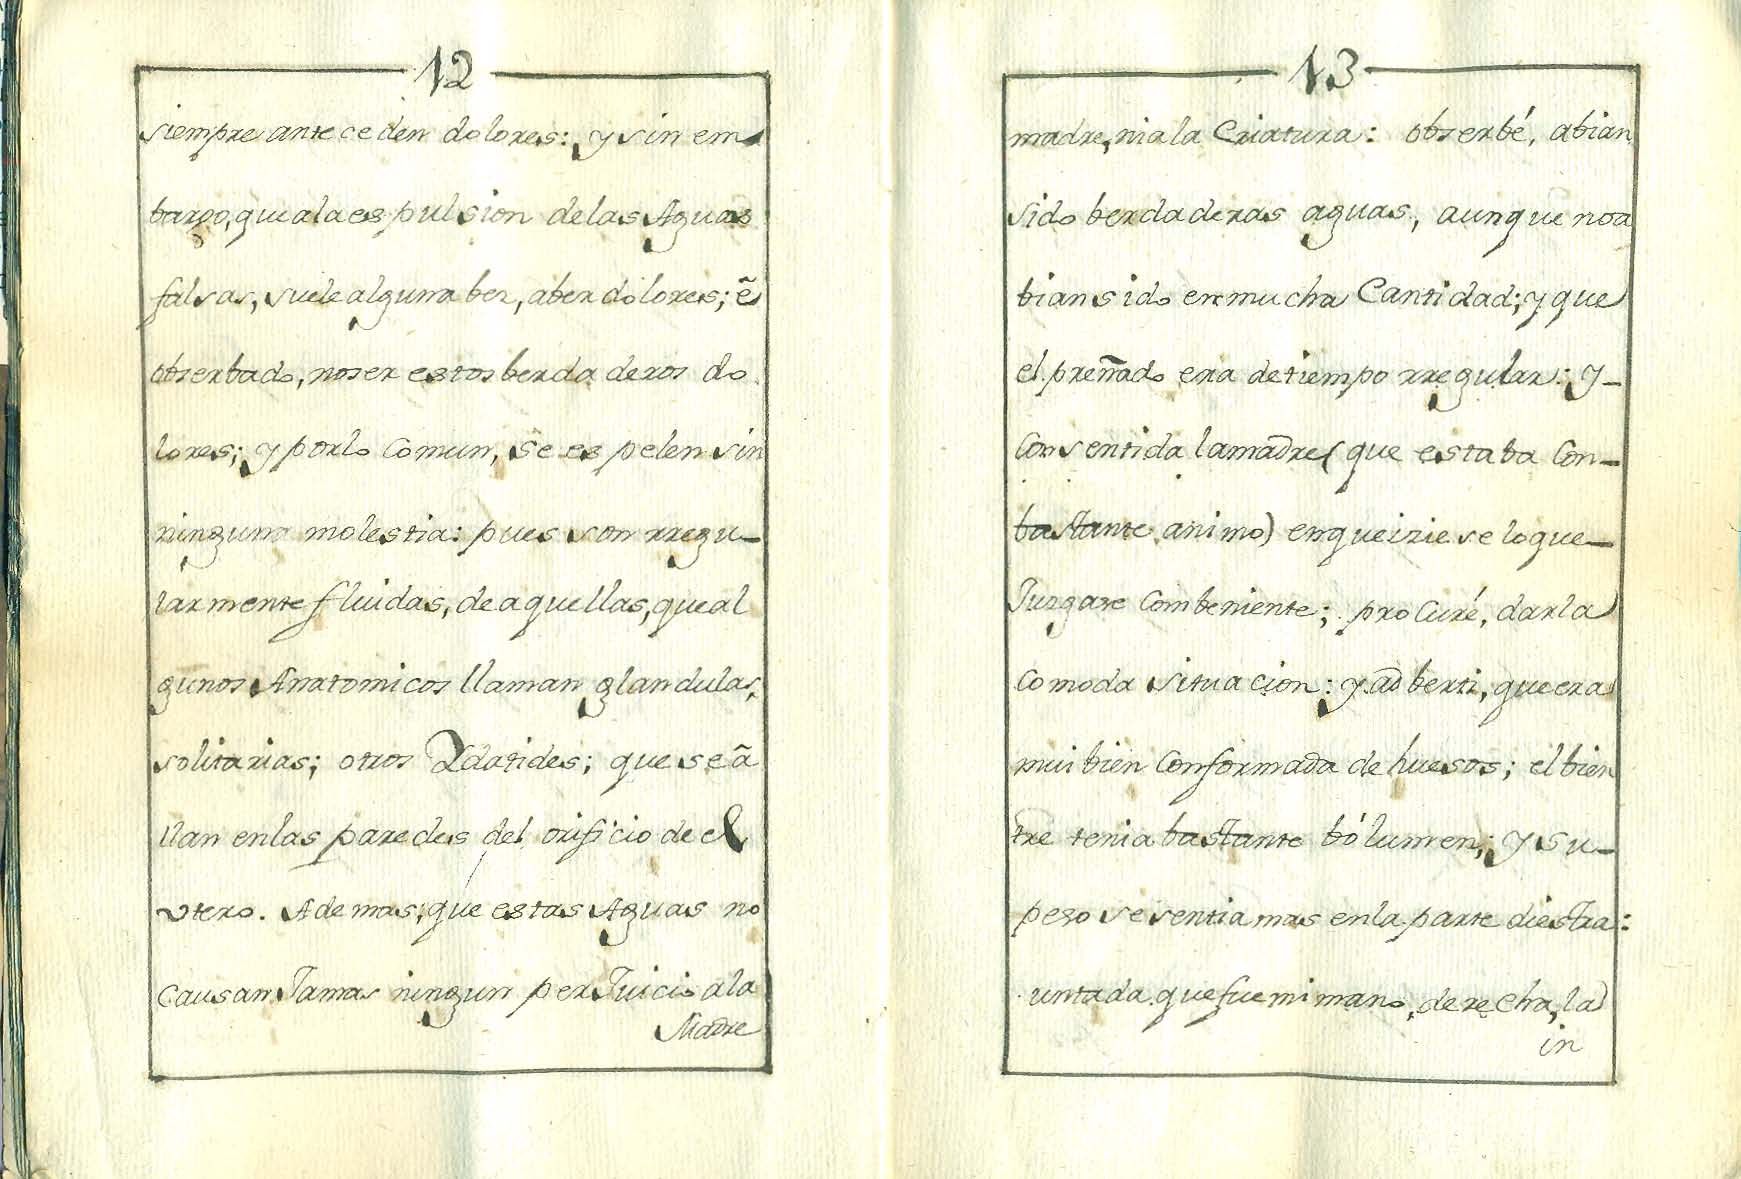 12
siempre anteceden dolores: y sin em
bargo, que a la espulsion de las Aguas
falsas, suele alguna bez, aber dolores; ẽ
obserbado, no ser estos berdaderos do
lores; y por lo comun, se espelen sin
ninguna molestia: pues son rregu-
larmente fluidas, de aquellas, que al
gunos Anatomicos llaman glandulas,
solitarias; otros Ydatides; que se ã
llan en las paredes del orificio de el
vtero. Ademas; que estas Aguas no
causan Jamas ningun perJuicio a la
Madre
13
madre, ni a la Criatura: obserbé, abian
sido berdaderas aguas, aunque no a
bian sido en mucha Cantidad; y que
el preñado era de tiempo rregular: y-
consentida la madre (que estaba con-
bastante animo) en que iziese lo que-
Juzgase combeniente; procuré, darla
comoda situacion: y adberti, que era
mui bien conformada de huesos; el bien
tre tenia bastante bólumen; y su-
peso se sentia mas en la parte diestra:
untada que fue mi mano, derecha, la
in